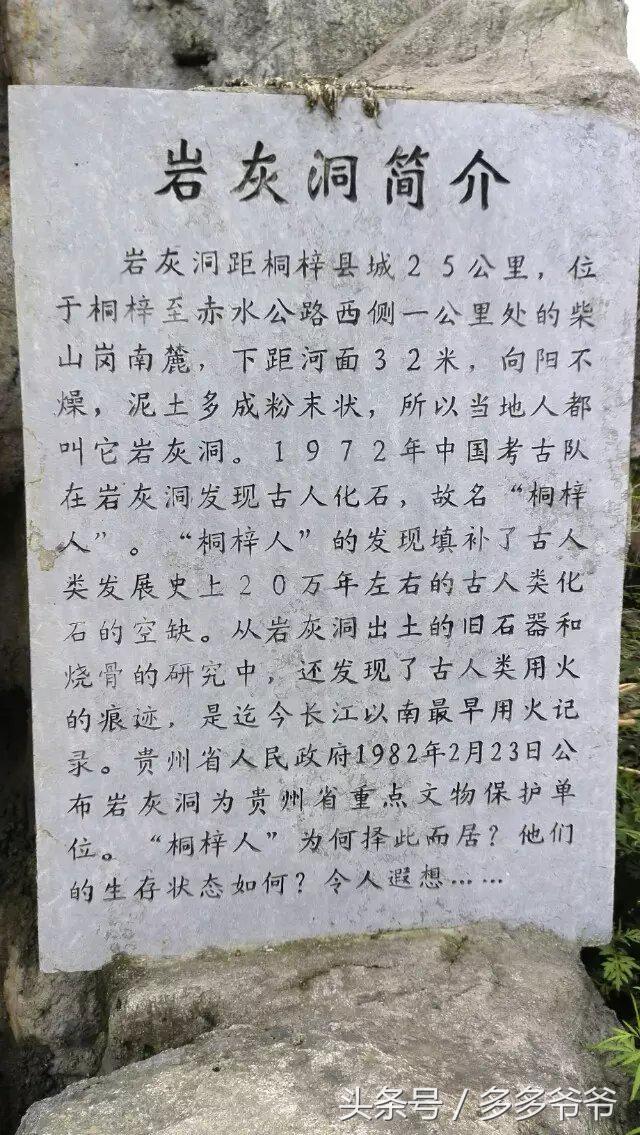 岩灰洞简介
岩灰洞距桐梓县城25公里，位
于桐梓至赤水公路西侧一公里处的柴
山岗南麓，下距河面32米，向阳不
燥，泥土多成粉末状，所以当地人都
叫它岩灰洞。1972年中国考古队
在岩灰洞发现古人化石，故名“桐梓
人”。“桐梓人”的发现填补了古人
类发展史上20万年左右的古人类化
石的空缺。从岩灰洞出土的旧石器和
烧骨的研究中，还发现了古人类用火
的痕迹，是迄今长江以南最早用火记
录。贵州省人民政府1982年2月23日公
布岩灰洞为贵州省重点文物保护单
位。“桐梓人”为何择此而居？他们
的生存状态如何？令人遐想……
头条号/多多爷爷